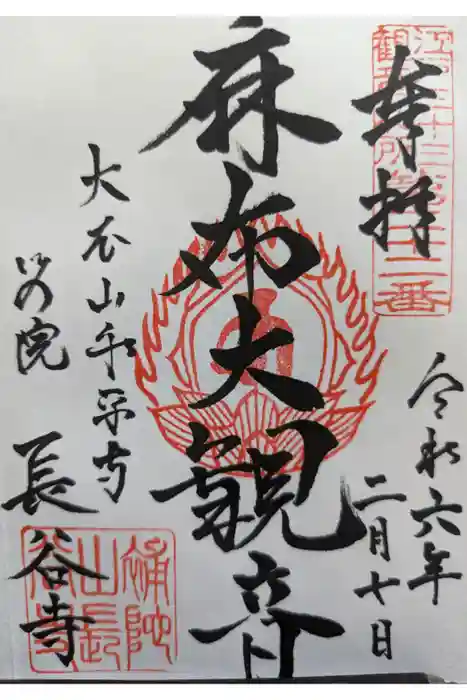 奉拝
江戸三十三観音札所第二十二番
令和六年
二月十日
麻布大観音
大本山永平寺
別院
長谷寺
補陀山長谷寺